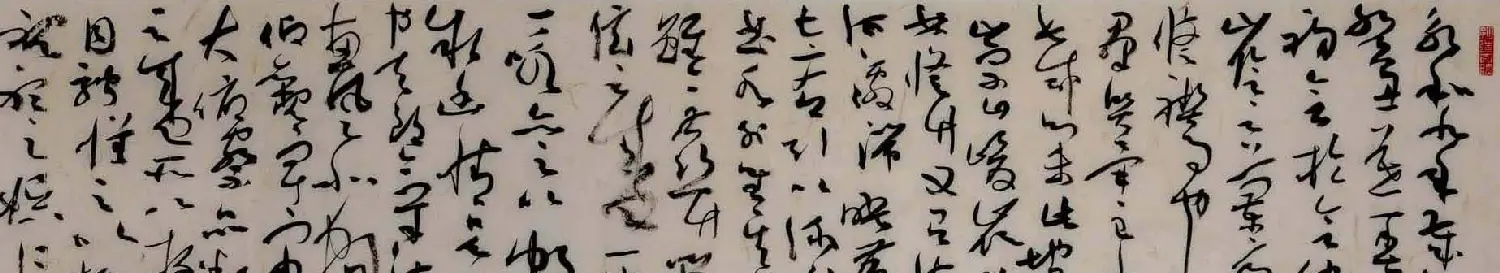 永和九年歲
癸丑暮春
初會於會
山陰之蘭亭
修禊事也
群賢畢至
長咸集此地
崇山峻
林修竹又有清
流激湍映帶
左右引以為
曲水列坐其
雖無絲竹管
弦之盛一
一詠亦足以暢
敘幽情是
也天朗氣清
惠風和暢
仰觀宇宙
大俯察品類
之盛所以遊
目騁懷足以
視聽之娛信